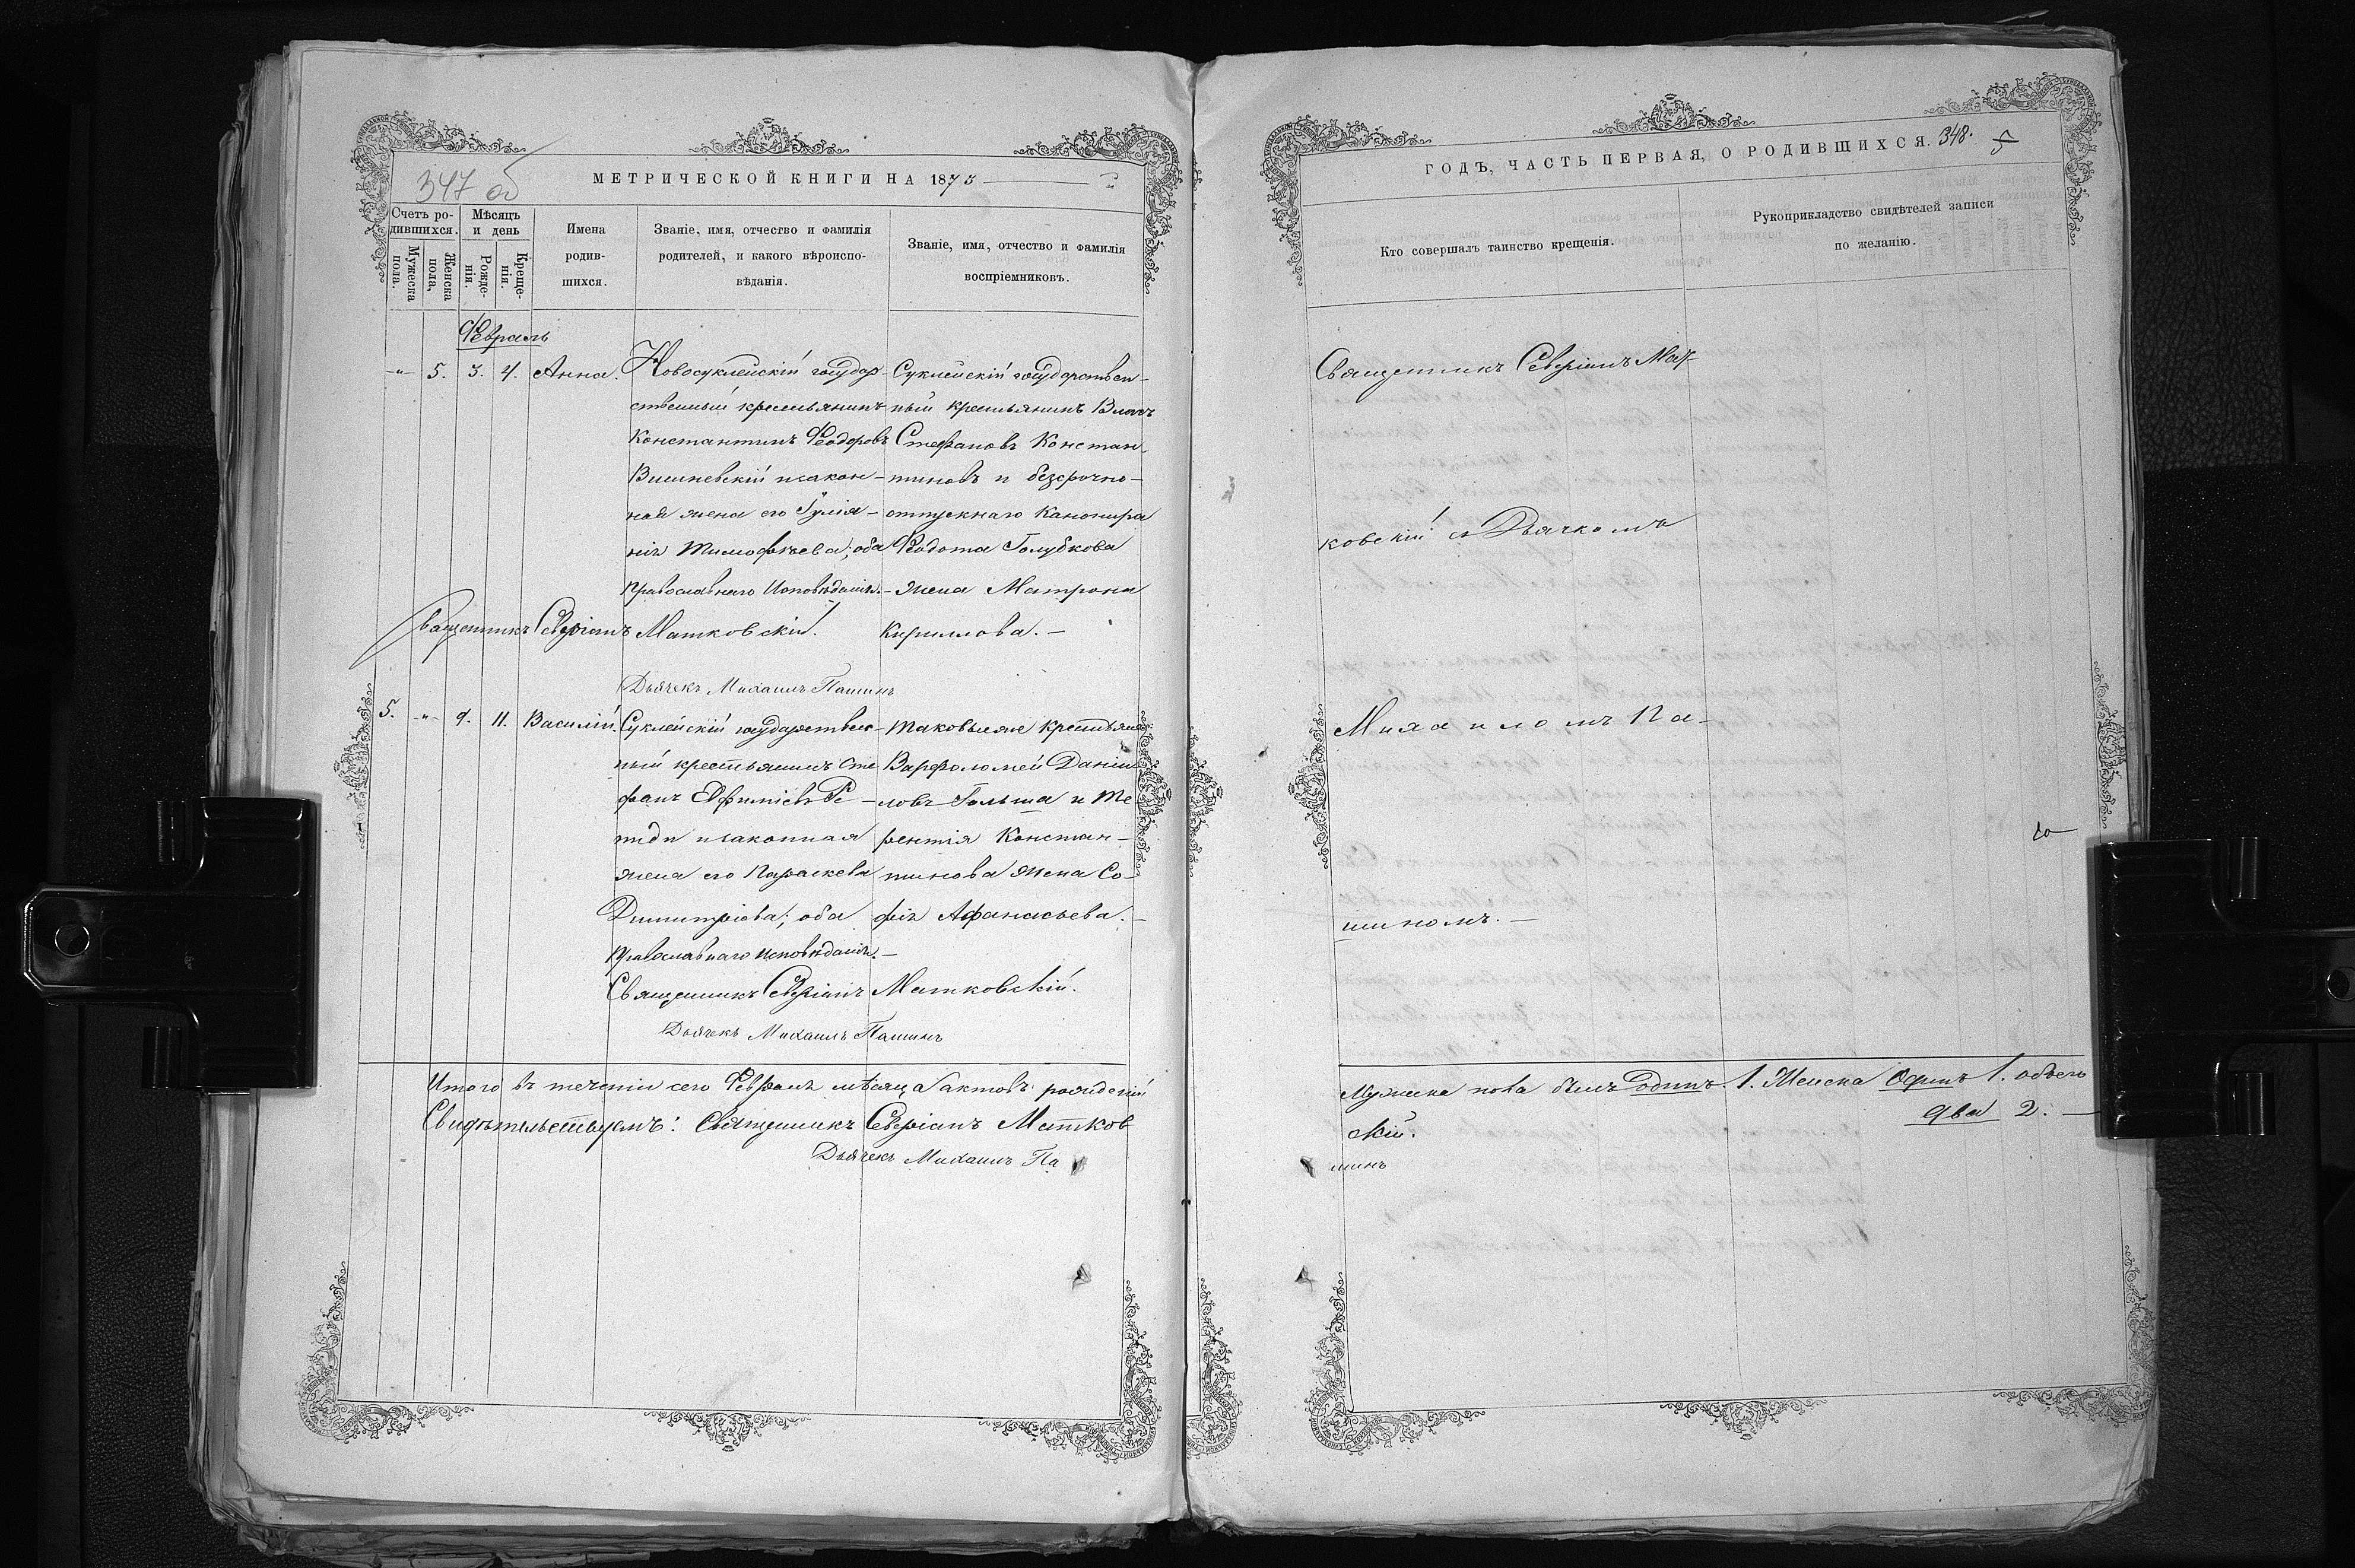 347 об
МЕТРИЧЕСКОЙ КНИГИ НА 1873
Счетъ ро-
дившихся.
Мужеска
пола.
Женска
пола,
Мѣсяцъ
и день
Рожде-
нія.
Креще-
нія.
Имена
родив-
шихся.
Званіе, имя, отчество и фамилія
родителей, и какого вѣроиспо-
вѣданія.
Званіе, имя, отчество и фамилія
воспріемниковъ.
Февраль
-"- 5. 3. 4. Анна.
Новосуклейскій государ-
ственный крестьянинъ
Константинъ Ѳеодоровъ
Вишневскій и закон-
ная жена его Іулія-
нія Тимофѣева; оба
Православнаго Исповѣданія.-
Суклейскій государствен-
ный крестьянинъ Власъ
Стефановъ Констан-
тиновъ и безсрочно-
отпускнаго Канонира
Ѳеодота Голубкова
жена Матрона
Кириллова. -
Священникъ Северіанъ Матковскій.
Дьячекъ Михаилъ Пашинъ
5. -"- 9. 11. Василій.
Суклейскій государствен-
ный крестьянинъ Сте
фанъ Евфиміевъ
и законная
жена его Параскева
Димитріева; оба
Православнаго Исповѣданія. -
таковыеже крестьяне
Варфоломей Даніи
ловъ Гольша и Те
рентія Констан-
тинова жена Со-
фія Афанасьева. -
Священникъ Северіанъ Матковскій.
Дьячекъ Михаилъ Пашинъ
Итого въ теченіи сего Февраля мѣсяца актовъ рожденій
Свидѣтельствуемъ: Священникъ Северіанъ Матков
Дьячекъ Михаилъ Па
ГОДЪ, ЧАСТЬ ПЕРВАЯ, О РОДИВШИХСЯ. 348. 5
Кто совершалъ таинство крещенія.
Рукоприкладство свидѣтелей записи
по желанію.
Священникъ Северіанъ Мат-
ковскій съ Дьячкомъ
Михаиломъ Па-
шиномъ. -
Мужеска пола былъ Одинъ. 1. Женска Одинъ 1. обоего
два 2. -
скій.
шинъ